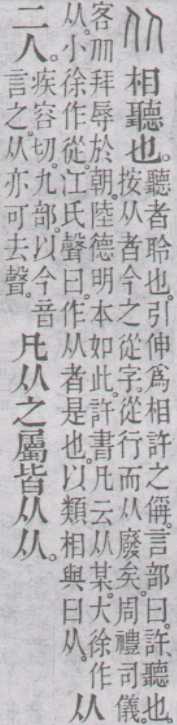 从 相聽也。
聽者聆也。引伸爲相許之偁。言部曰。許、聽也。
按从者今之從字。從行而从廢矣。周禮司儀。
客从拜辱於朝。陸德明本如此。許書凡云从某。大徐作
从。小徐作從。江氏聲曰。作从者是也。以類相與曰从。
从
二人。
疾容切。九部。以今音
言之。从亦可去聲。
凡从之屬皆从从。